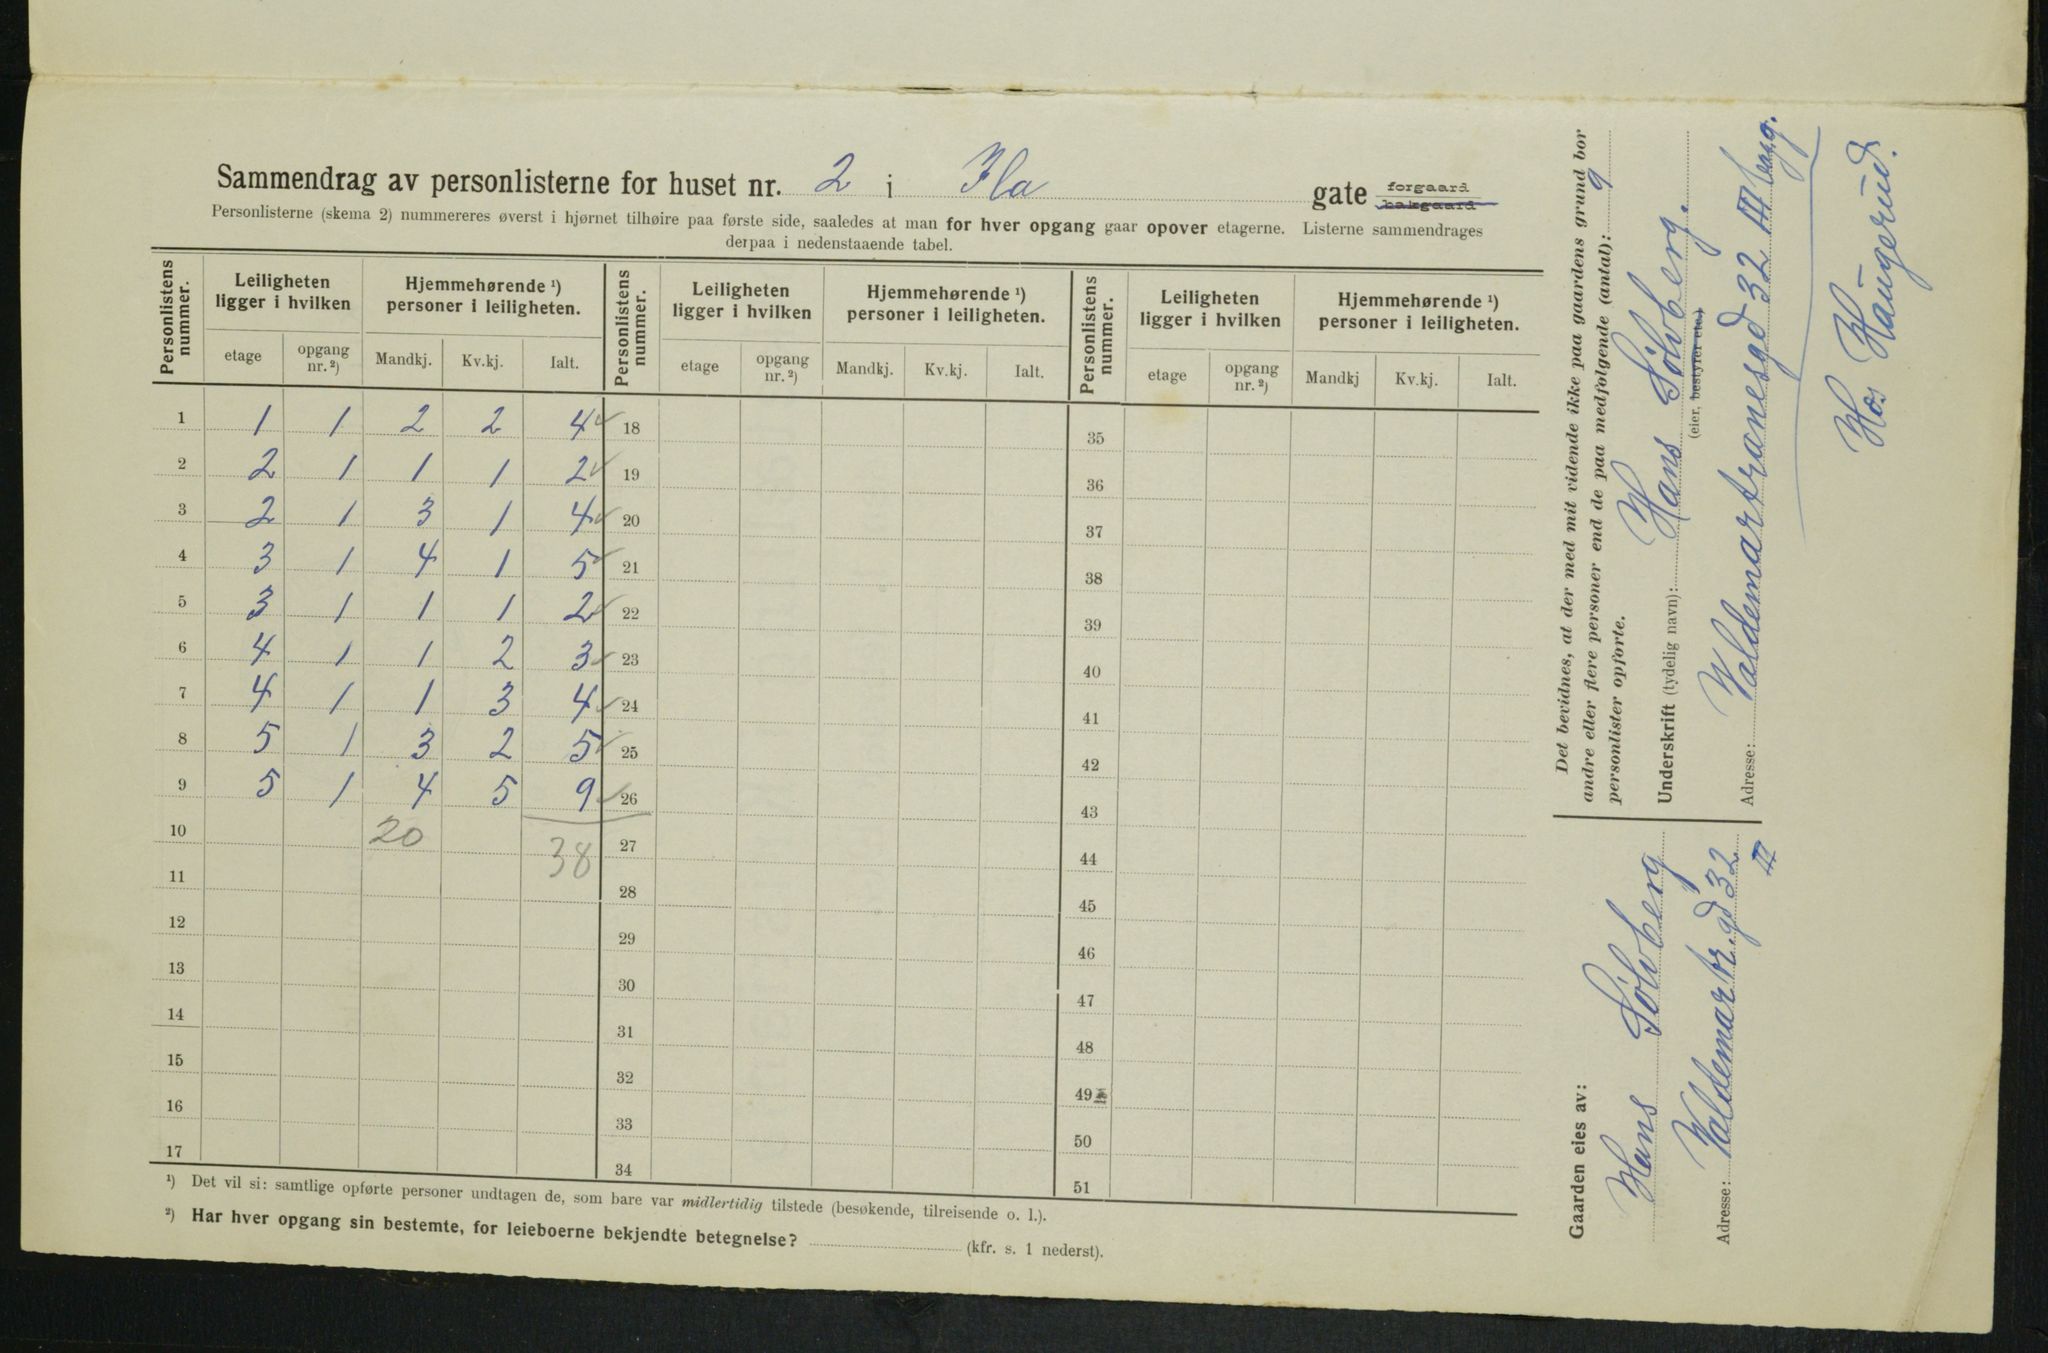 Sammendrag av personlisterne for huset nr. 2 i Ila gate forgaard bakgaard
Personlisterne (skema 2) nummereres øverst i hjørnet tilhøire paa første side, saaledes at man for hver opgang gaar opover etagerne. Listerne sammendrages
derpaa i nedenstaaende tabel.
Personlistens nummer. Leiligheten ligger i hvilken Hjemmehørende ¹) personer i leiligheten. Personlistens nummer. Leiligheten ligger i hvilken Hjemmehørende ¹) personer i leiligheten. Personlistens nummer. Leiligheten ligger i hvilken Hjemmehørende ¹) personer i leiligheten.
etage opgang nr. ²) Mandkj. Kv.kj. Ialt. etage opgang nr. ²) Mandkj. Kv.kj. Ialt. etage opgang nr. ²) Mandkj Kv.kj. Ialt.
1 1 1 2 2 4 18 35
2 2 1 1 1 2 19 36
3 2 1 3 1 4 20 37
4 3 1 4 1 5 21 38
5 3 1 1 1 2 22 39
6 4 1 1 2 3 23 40
7 4 1 1 3 4 24 41
8 5 1 3 2 5 25 42
9 5 1 4 5 9 26 43
10 20 38 27 44
11 28 45
12 29 46
13 30 47
14 31 48
15 32 49
16 33 50
17 34 51
¹) Det vil si: samtlige opførte personer undtagen de, som bare var midlertidig tilstede (besøkende, tilreisende o. l.).
²) Har hver opgang sin bestemte, for leieboerne bekjendte betegnelse? (kfr. s. 1 nederst).
Det bevidnes, at der med mit vidende ikke paa gaardens grund bor
andre eller flere personer end de paa medfølgende (antal): 9
personlister opførte.
Underskrift (tydelig navn): Hans Sölvberg.
(eier, bestyrer etc.)
Adresse: Valdemarthranesgd 32 III bagg.
Hos Haugerud.
Gaarden eies av:
Hans Sölvberg
Adresse: Valdemar tr. gd 32
III